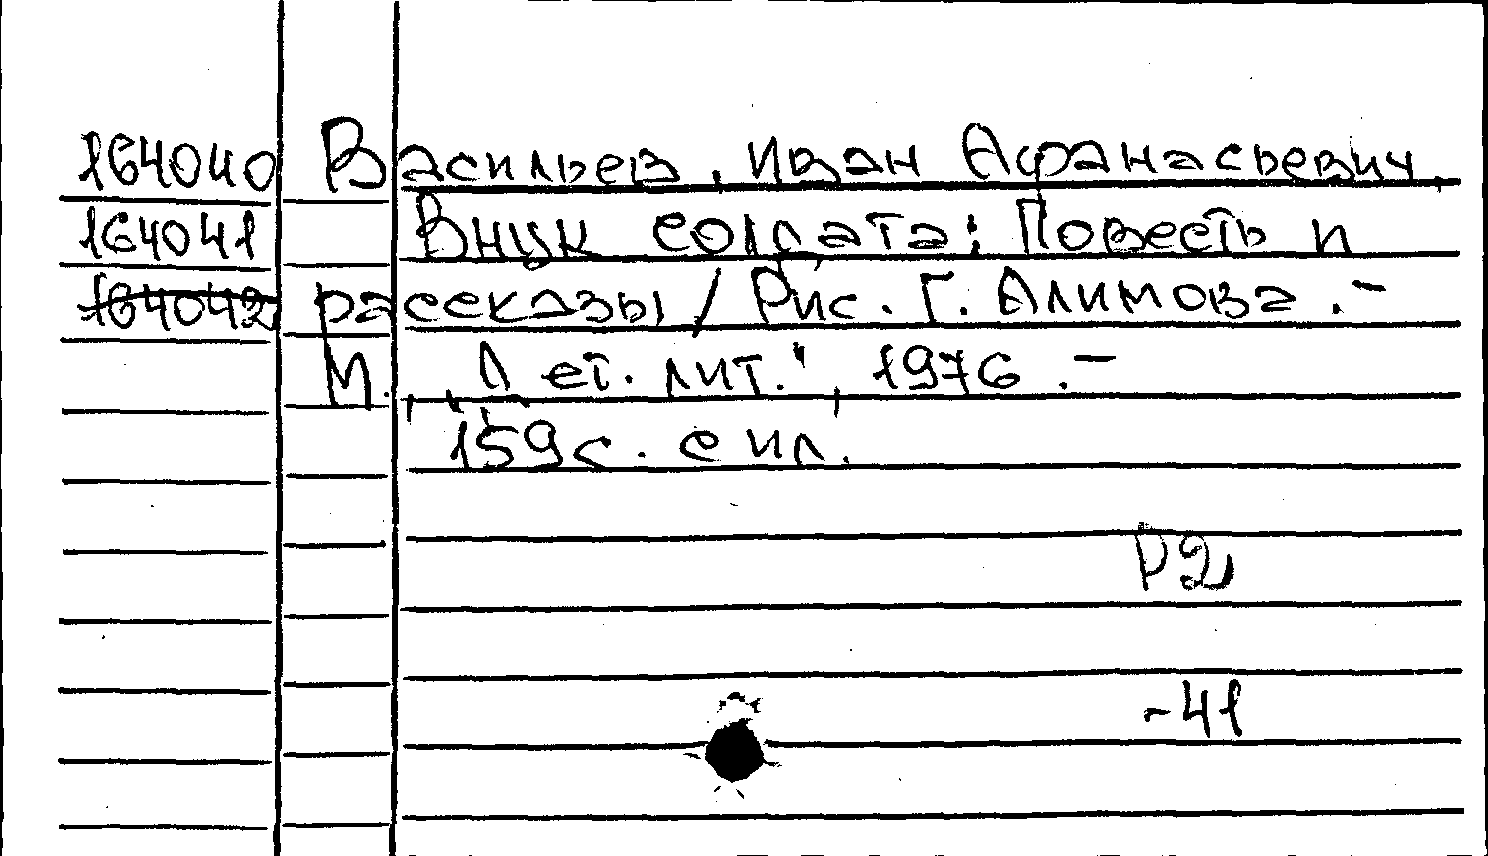 164040 Васильев, Иван Афанасьевич.
164041 Внук солдата: Повесть и
164042 рассказы / Рис. Г. Алимова. –
М., "Дет. лит.", 1976. –
159 с. с ил.
Р2
-41